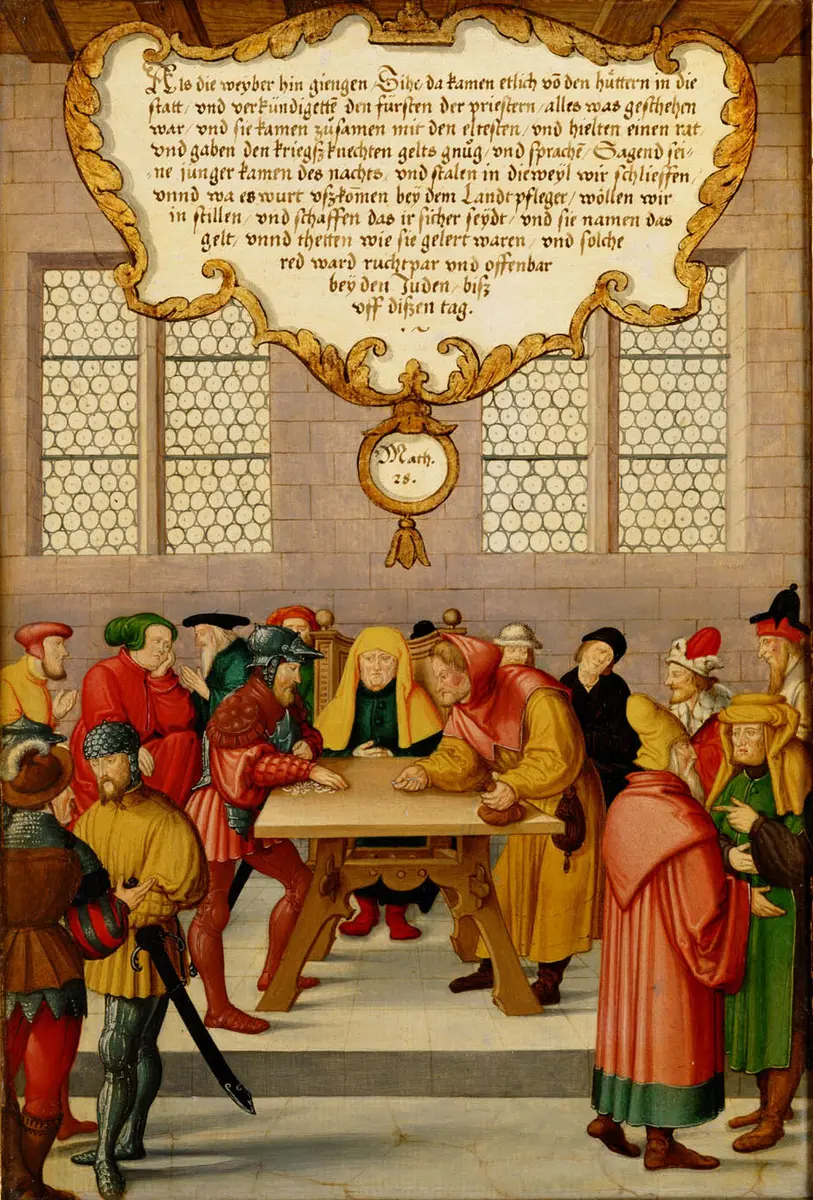 Als die weyber hin giengen / Sihe / da kamen etlich võ den hüttern in die
statt / vnd verkündigettẽ den fürsten der priestern / alles was geschehen
war / vnd sie kamen zůsamen mit den eltesten / vnd hielten einen rat /
vnd gaben den kriegsz knechten gelts gnůg / vnd sprachẽ / Sagend sei-
ne junger kamen des nachts / vnd stalen in dieweyl wir schlieffen /
vnnd wa es wurt vszkom̃en bey dem Landtpfleger / wöllen wir
in stillen / vnd schaffen das ir sicher seydt / vnd sie namen das
gelt / vnnd thetten wie sie gelert waren / vnd solche
red ward ruchtpar vnd offenbar
bey den Juden / bisz
vff diszen tag.
Math.
28.